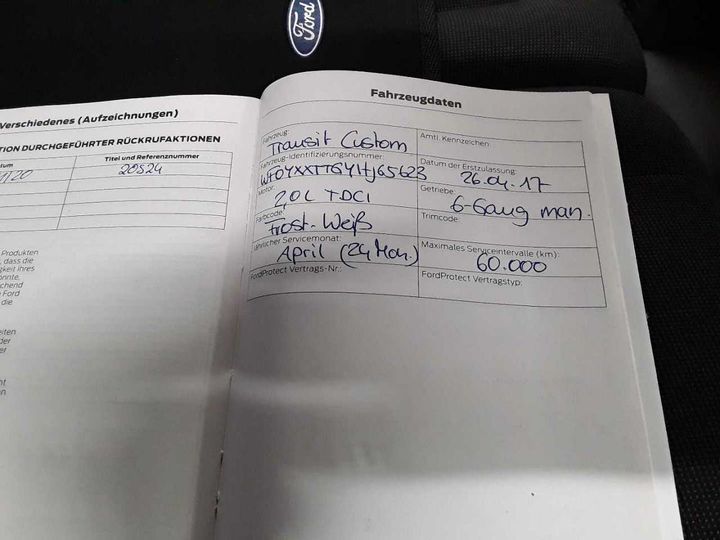 Ford
Verschiedenes (Aufzeichnungen)
TION DURCHGEFÜHRTER RÜCKRUFAKTIONEN
tum
Titel und Referenznummer
1/20
20S24
Produkten
, dass die
gkeit Ihres
onnte,
chend
Ford
die
eiten
der
er
ht
en
Fahrzeugdaten
Fahrzeug:
Transit Custom
Amtl. Kennzeichen
Fahrzeug-Identifizierungsnummer
Datum der Erstzulassung:
26.04.17
Motor:
2,0L TDCI
Getriebe:
6-Gang man.
Farbcode:
Frost-Weiß
Trimcode:
Jährlicher Servicemonat:
April (24 Mon.)
Maximales Serviceintervalle (km):
60.000
FordProtect Vertrags-Nr.:
FordProtect Vertragstyp: